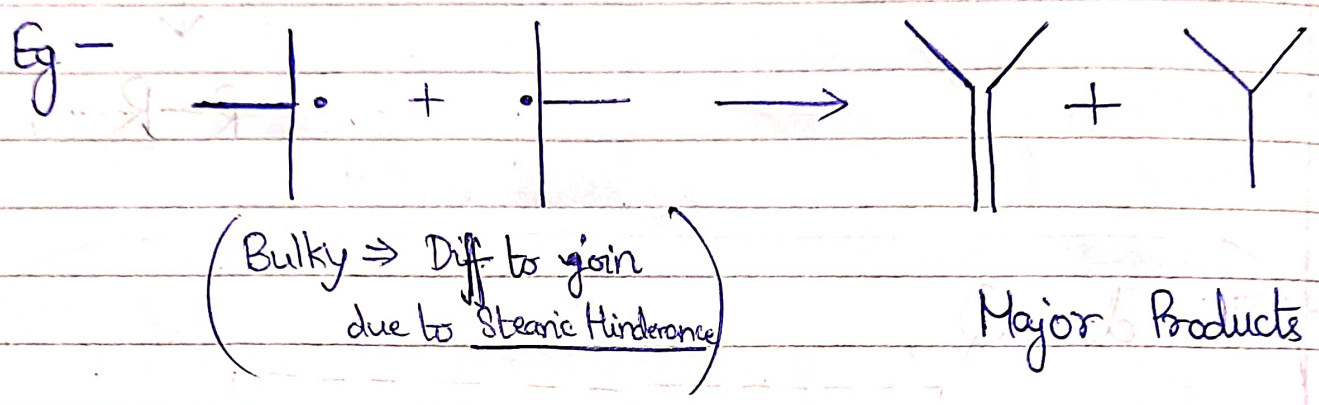 Eg - • + • → +
(Bulky ⇒ Diff to join
due to Stearic Hinderance)
Major Products